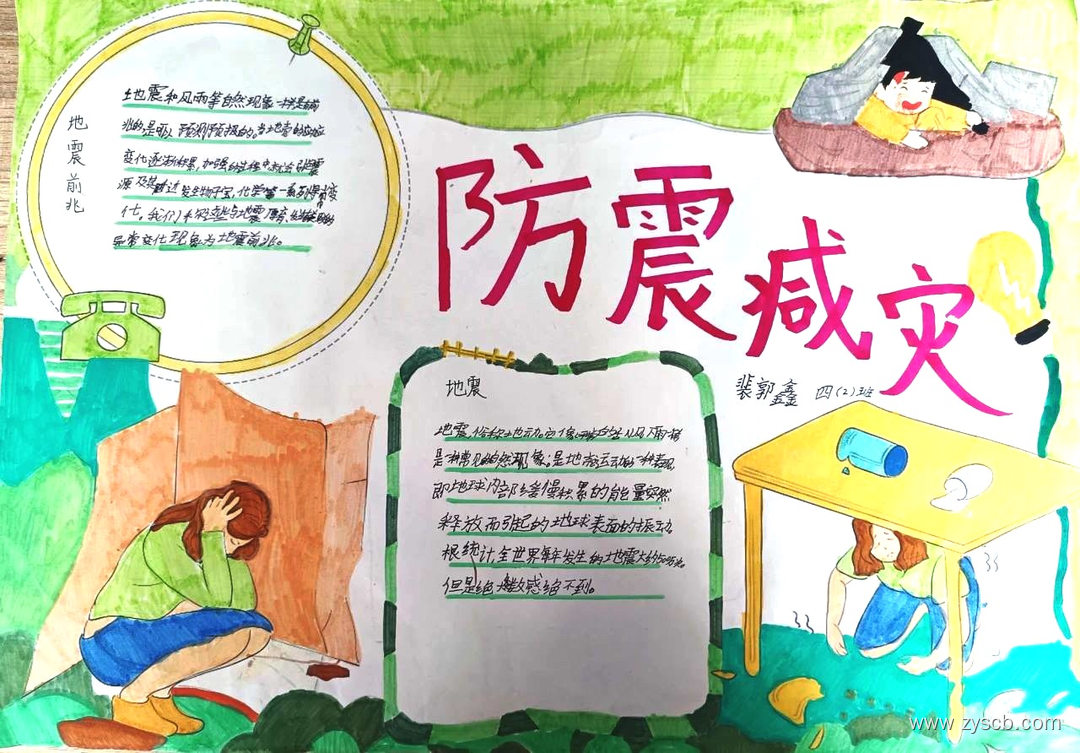 防震减灾
裴郭鑫 四(2)班
地震前兆
地震和风雨等自然现象一样是有前
兆的是可以预测预报的。当地壳的应力
变化逐渐积累,加强的
源及其附近发生物理、化学等一系列异常变
化,我们
异常变化现象为地震前兆。
地震
地震,俗称地动。它像
是一种常见的自然现象;是地壳运动的一种表现
即地球内部缓慢积累的能量突然
释放而引起的地球表面的振动
根统计全世界每年发生的地震大约
但是绝大多数感觉不到。
www.zyscb.com